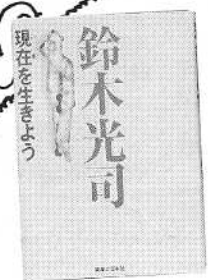 鈴木光司
現在を生きよう